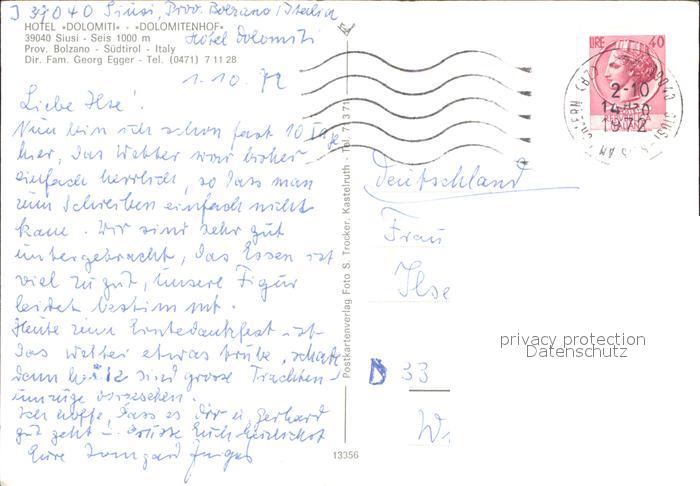 I 39040 Siusi, Prov. Bolzano/Italia
HOTEL »DOLOMITI« - »DOLOMITENHOF«
Hôtel Dolomiti
39040 Siusi - Seis 1000 m
Prov. Bolzano - Südtirol - Italy
Dir. Fam. Georg Egger - Tel. (0471) 7 11 28
1.10.72
Liebe Ilse!
Nun bin ich schon fast 10 Tage
hier, das Wetter war bisher
einfach herrlich, so dass man
zum Schreiben einfach nicht
kam. Wir sind sehr gut
untergebracht, das Essen ist
viel zu gut, unsere Figur
leidet bestimmt.
Heute zum Erntedankfest ist
das Wetter etwas trübe, schade
denn hier sind grosse Trachten-
umzüge vorgesehen.
Ich hoffe, dass es Dir u. Gerhard
gut geht u. grüsse Euch herzlichst
Eure Irmgard
Postkartenverlag Foto S. Trocker, Kastelruth - Tel. 71371
13356
LIRE 40
2-10
1972
Deutschland
Frau
Ilse
D 33
privacy protection
Datenschutz